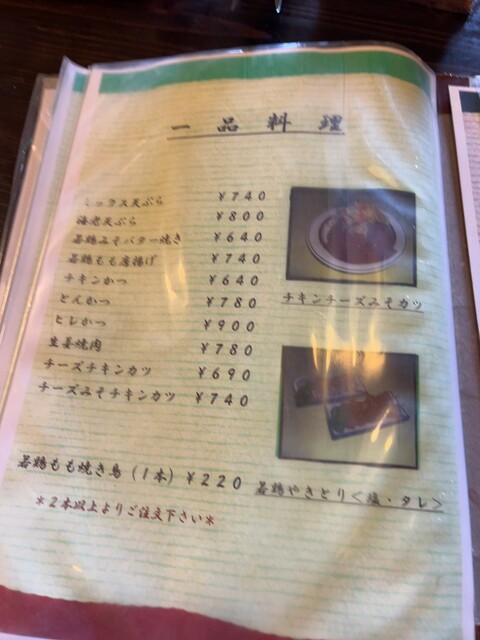 一品料理
ミックス天ぷら ￥740
海老天ぷら ￥800
若鶏みそバター焼き ￥640
若鶏もも唐揚げ ￥740
チキンかつ ￥640
とんかつ ￥780
ヒレかつ ￥900
生姜焼肉 ￥780
チーズチキンカツ ￥690
チーズみそチキンカツ ￥740
チキンチーズみそカツ
若鶏もも焼き鳥（1本）￥220
若鶏やきとり＜塩・タレ＞
＊2本以上よりご注文下さい＊